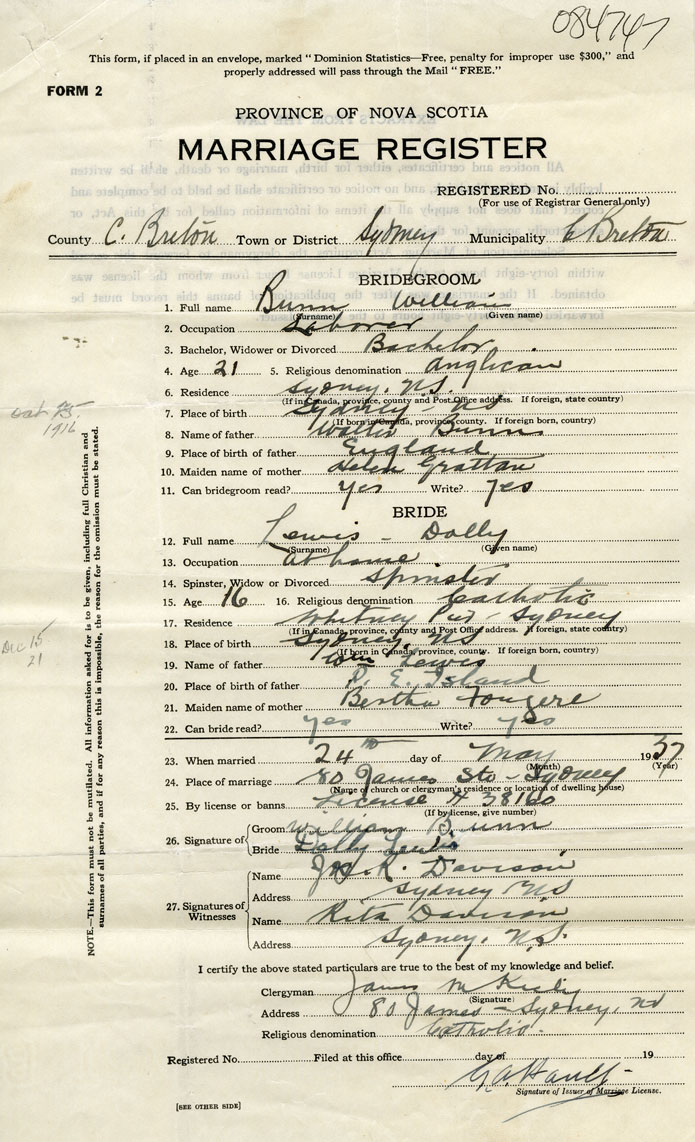 084747
This form, if placed in an envelope, marked "Dominion Statistics—Free, penalty for improper use $300," and
properly addressed will pass through the Mail "FREE."
FORM 2
PROVINCE OF NOVA SCOTIA
MARRIAGE REGISTER
REGISTERED No.
(For use of Registrar General only)
County C. Breton Town or District Sydney Municipality C Breton
BRIDEGROOM
1. Full name Bunn William
(Surname) (Given name)
2. Occupation Laborer
3. Bachelor, Widower or Divorced Bachelor
4. Age 21 5. Religious denomination Anglican
6. Residence Sydney, N.S.
(If in Canada, province, county and Post Office address. If foreign, state country)
7. Place of birth Sydney - NS
(If born in Canada, province, county. If foreign born, country)
8. Name of father Walter Bunn
9. Place of birth of father England
10. Maiden name of mother Helen Grattan
11. Can bridegroom read? Yes Write? Yes
BRIDE
12. Full name Lewis - Dolly
(Surname) (Given name)
13. Occupation at home
14. Spinster, Widow or Divorced Spinster
15. Age 16 16. Religious denomination Catholic
17. Residence Whitney Pier Sydney
(If in Canada, province, county and Post Office address. If foreign, state country)
18. Place of birth Sydney, NS
(If born in Canada, province, county. If foreign born, country)
19. Name of father Lewis
20. Place of birth of father P. E. Island
21. Maiden name of mother Bertha Fougere
22. Can bride read? yes Write? yes
23. When married 24th day of May 1937
(Month) (Year)
24. Place of marriage 80 James St. - Sydney
(Name of church or clergyman's residence or location of dwelling house)
25. By license or banns License # 38160
(If by license, give number)
26. Signature of Groom William Bunn
Bride Dolly Lewis
27. Signatures of Witnesses Name K. Davison
Address Sydney NS
Name Rita Davison
Address Sydney, N.S.
I certify the above stated particulars are true to the best of my knowledge and belief.
Clergyman James
(Signature)
Address 80 James - Sydney, NS
Religious denomination Catholic
Registered No. Filed at this office day of 19
Signature of Issuer of Marriage License.
[SEE OTHER SIDE]
NOTE.—This form must not be mutilated. All information asked for is to be given, including full Christian and
surnames of all parties, and if for any reason this is impossible, the reason for the omission must be stated.
1916
Dec 15
21